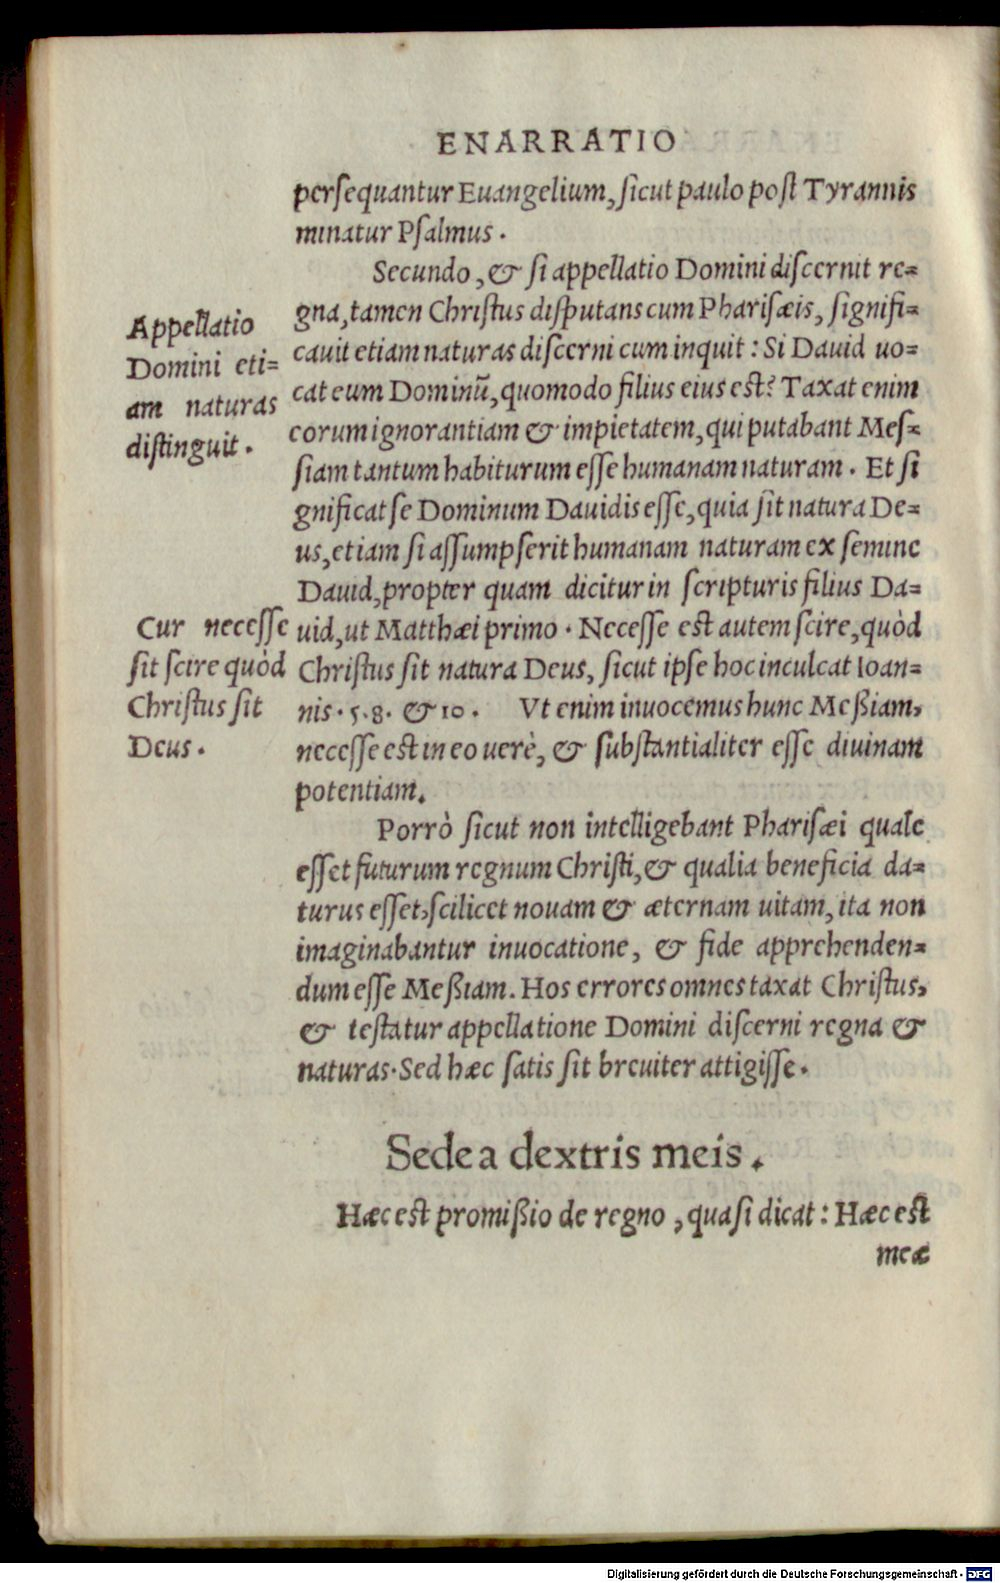 ENARRATIO
persequantur Euangelium, sicut paulo post Tyrannis
minatur Psalmus.
Secundo, & si appellatio Domini discernit re=
gna, tamen Christus disputans cum Pharisæis, signifi=
cauit etiam naturas discerni cum inquit: Si Dauid uo=
cat eum Dominũ, quomodo filius eius est? Taxat enim
eorum ignorantiam & impietatem, qui putabant Mes=
siam tantum habiturum esse humanam naturam. Et si
gnificat se Dominum Dauidis esse, quia sit natura De=
us, etiam si assumpserit humanam naturam ex semine
Dauid, propter quam dicitur in scripturis filius Da=
uid, ut Matthæi primo. Necesse est autem scire, quòd
Christus sit natura Deus, sicut ipse hoc inculcat Ioan=
nis. 5. 8. & 10. Vt enim inuocemus hunc Meßiam,
necesse est in eo uerè, & substantialiter esse diuinam
potentiam.
Appellatio
Domini eti=
am naturas
distinguit.
Cur necesse
sit scire quòd
Christus sit
Deus.
Porrò sicut non intelligebant Pharisæi quale
esset futurum regnum Christi, & qualia beneficia da=
turus esset, scilicet nouam & æternam uitam, ita non
imaginabantur inuocatione, & fide apprehenden=
dum esse Meßiam. Hos errores omnes taxat Christus,
& testatur appellatione Domini discerni regna &
naturas. Sed hæc satis sit breuiter attigisse.
Sede a dextris meis.
Hæc est promißio de regno, quasi dicat: Hæc est
meæ
Digitalisierung gefördert durch die Deutsche Forschungsgemeinschaft - DFG